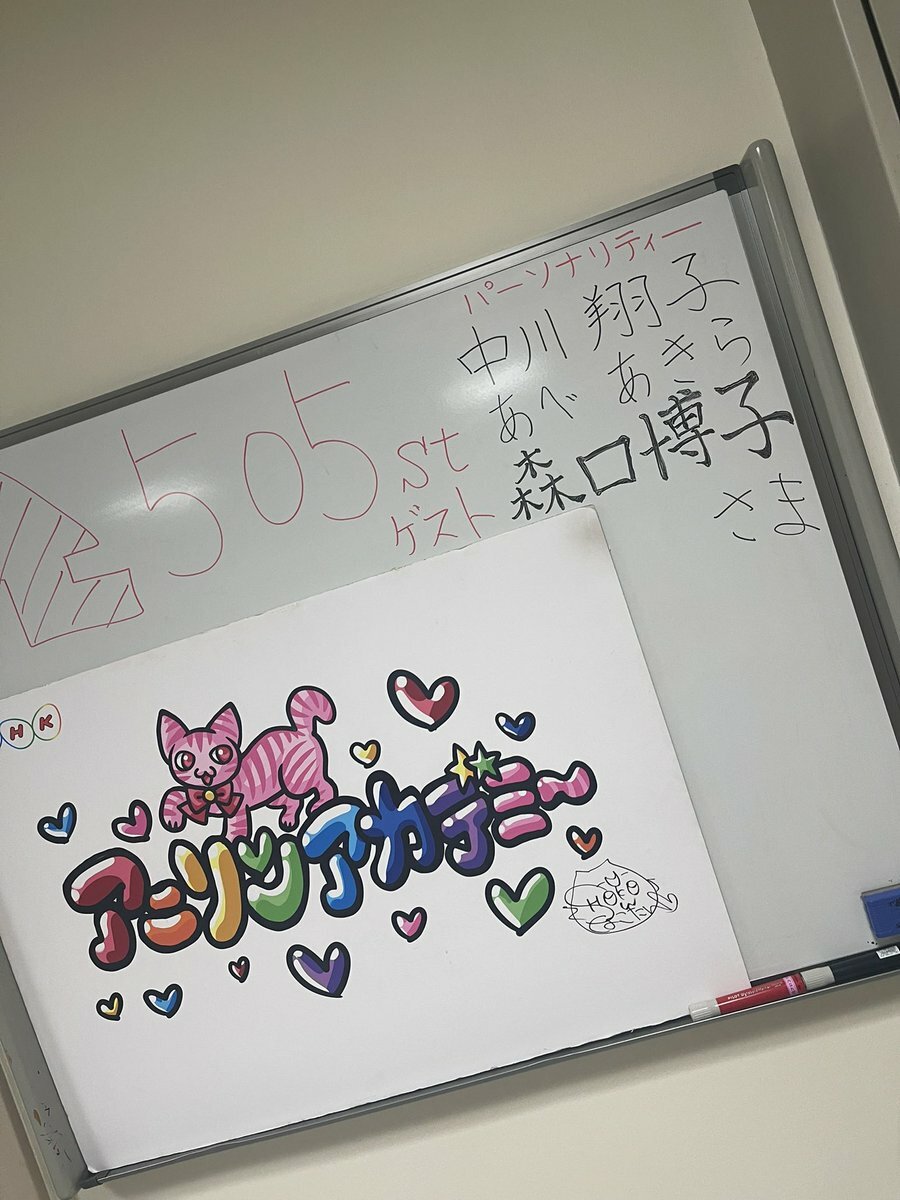 パーソナリティー
中川 翔子
あべ あきら
505st
ゲスト 森口博子
さま
HK
アニリンアカデミ〜